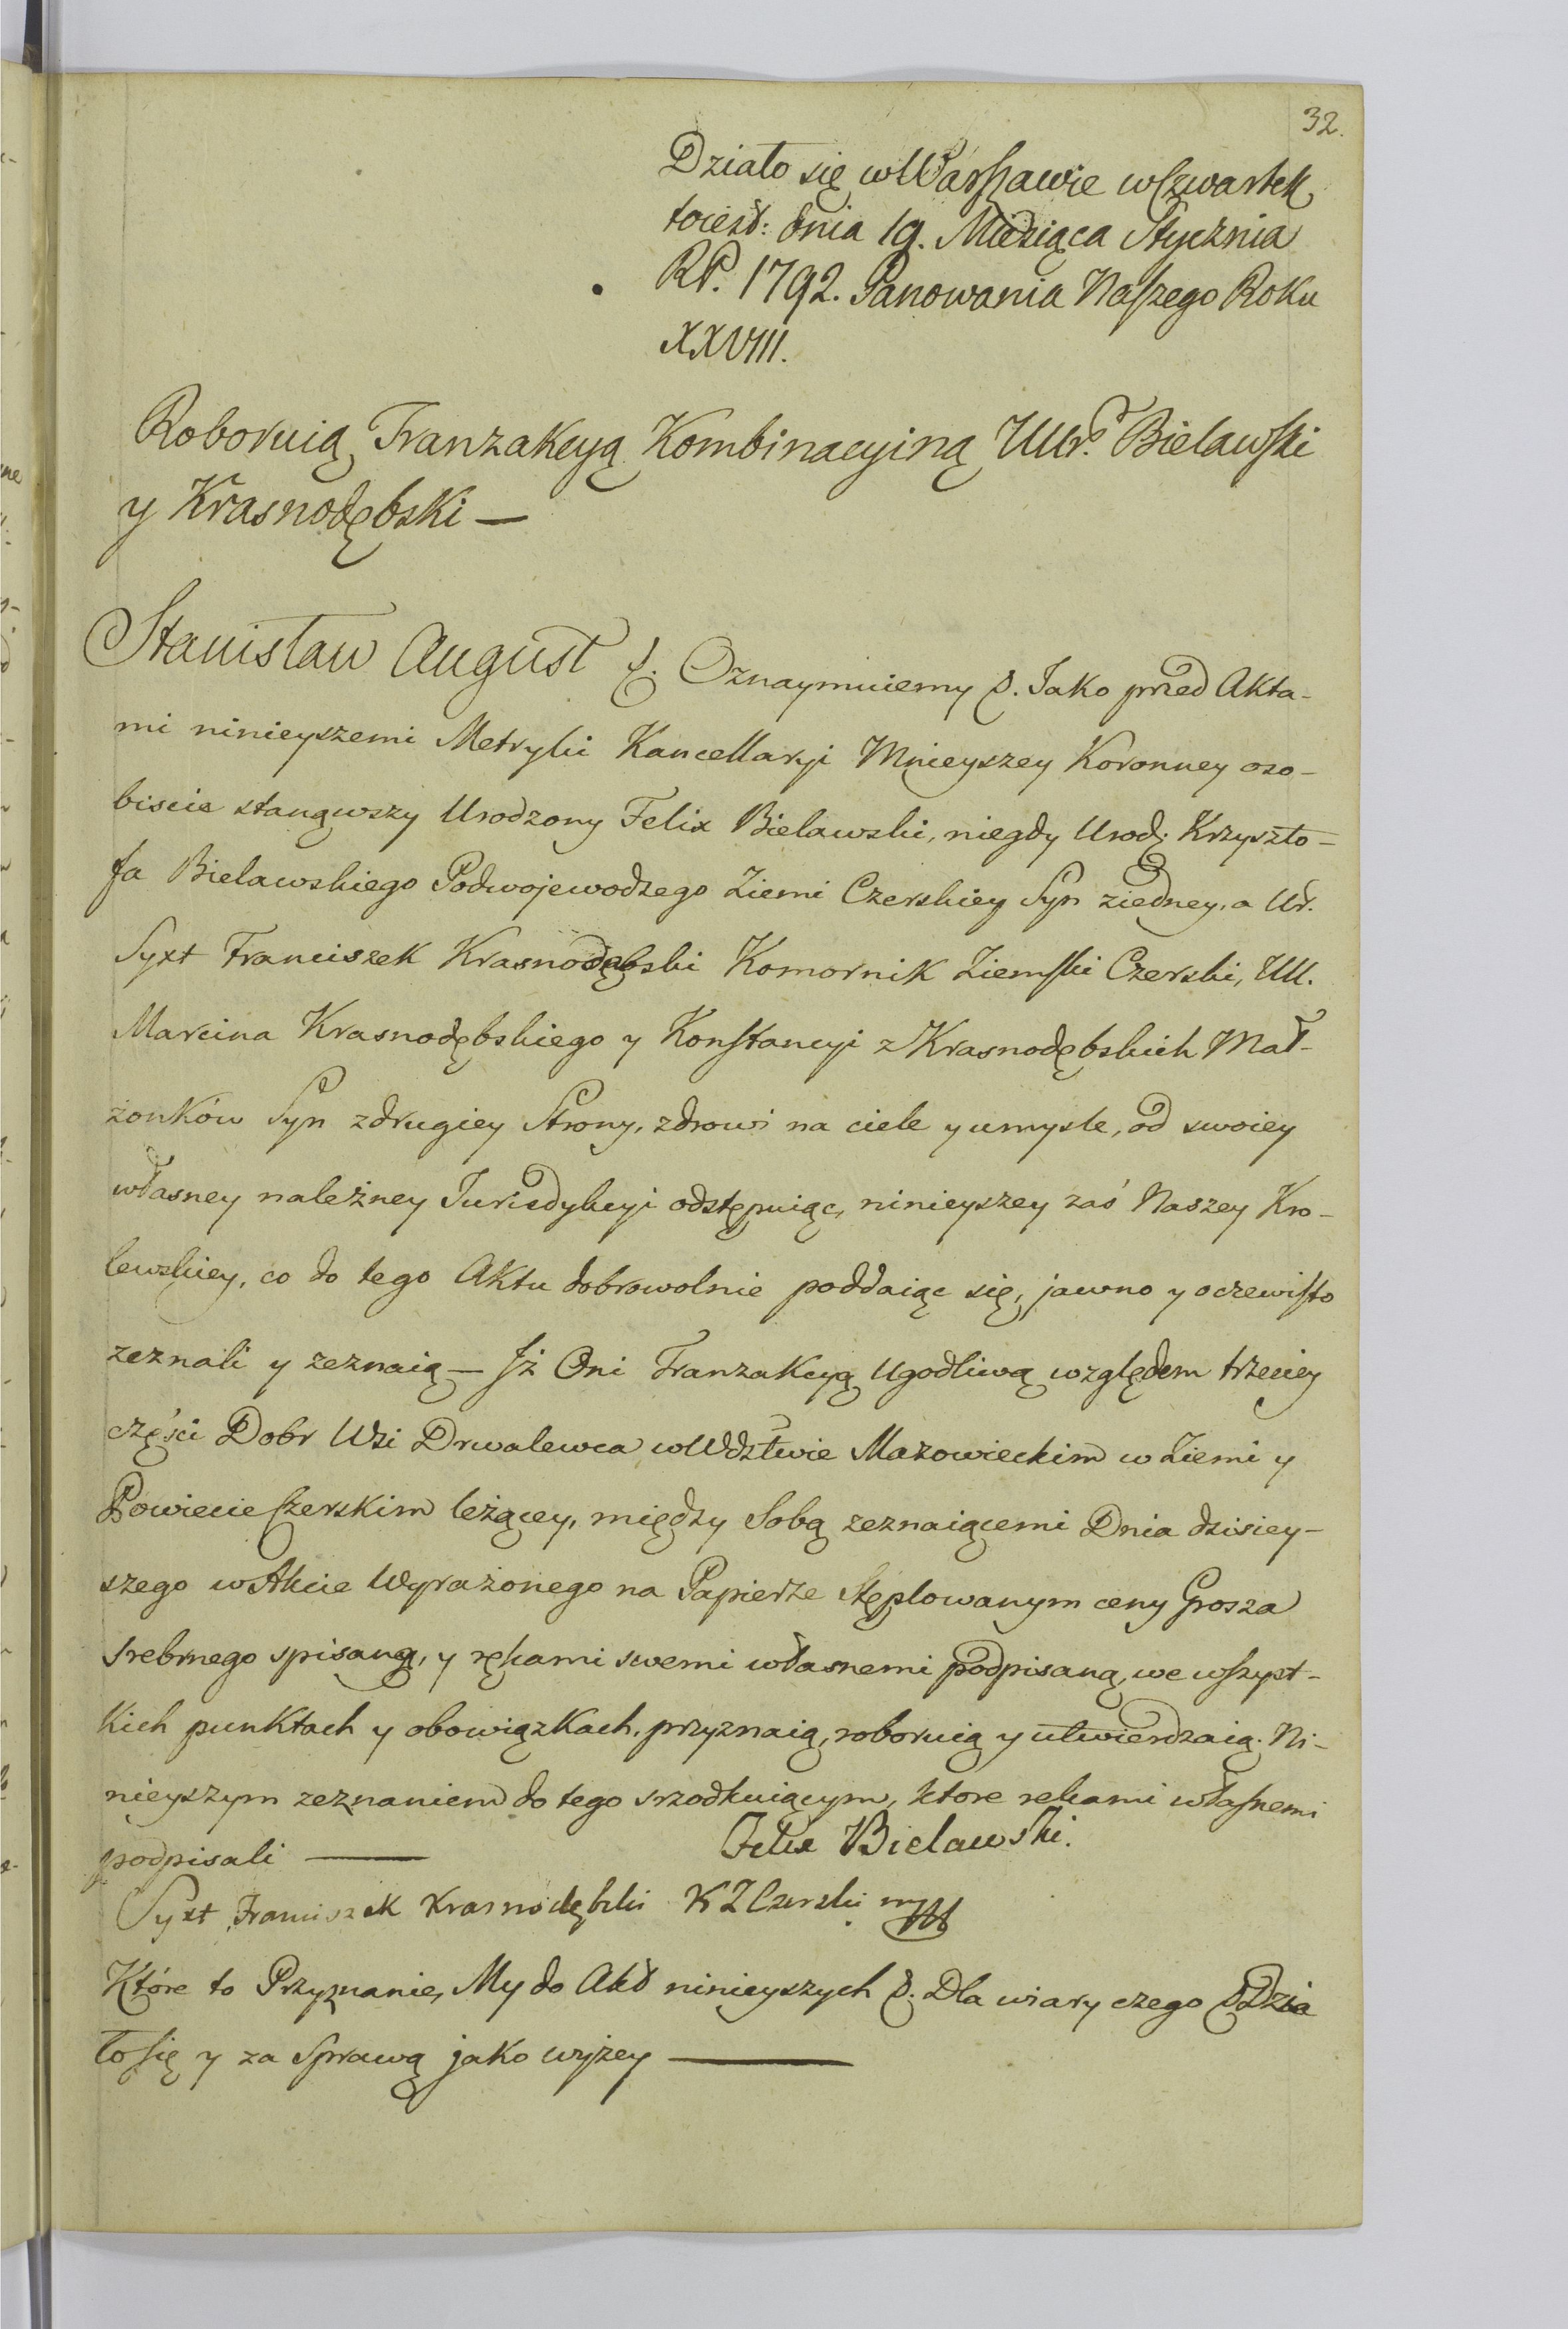 32.
Działo się w Warszawie w Czwartek
toiest: dnia 19. Miesiąca Stycznia
RP. 1792. Panowania Naszego Roku
XXVIII.
Roboruią Tranzakcyą Kombinacyiną UUr. Bielawski
y Krasnodębski —
Stanisław August &. Oznaymuiemy &. Jako przed Akta-
mi ninieyszemi Metryki Kancellaryi Mnieyszey Koronney oso-
biscie stanąwszy Urodzony Felix Bielawski, niegdy Urodz. Krzyszto-
fa Bielawskiego Podwojewodzego Ziemi Czerskiey Syn ziedney, a Ur.
Syxt Franciszek Krasnodębski Komornik Ziemski Czerski, UU.
Marcina Krasnodębskiego y Konstancyi z Krasnodębskich Mał-
żonków Syn zdrugiey Strony, zdrowi na ciele y umysle, od swoiey
własney należney Jurisdykcyi odstępuiąc, ninieyszey zaś Naszey Kro-
lewskiey, co do tego Aktu dobrowolnie poddaiąc się, jawno y oczewisto
zeznali y zeznaią — Iż Oni Tranzakcyą Ugodliwą względem trzeciey
części Dobr Wsi Drwalewca w Wdztwie Mazowieckim w Ziemi y
Powiecie Czerskim leżącey, między Sobą zeznaiącemi Dnia dzisiey-
szego w Akcie Wyrażonego na Papierze Stęplowanym ceny Grosza
srebrnego spisaną, y rękami swemi własnemi podpisaną, we wszyst-
kich punktach y obowiązkach, przyznaią, roboruią y utwierdzaią. Ni-
nieyszym zeznaniem do tego srzodkuiącym, ktore rekami własnemi
podpisali — Felix Bielawski.
Syxt Franciszek Krasnodębski KZCzerski mpp
Które to Przyznanie, My do Akt ninieyszych &. Dla wiary czego & Dzia
ło się y za Sprawą jako wyżey —